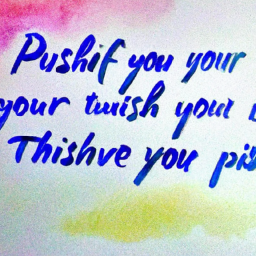 Pushif you your
your twish your
Thishve you